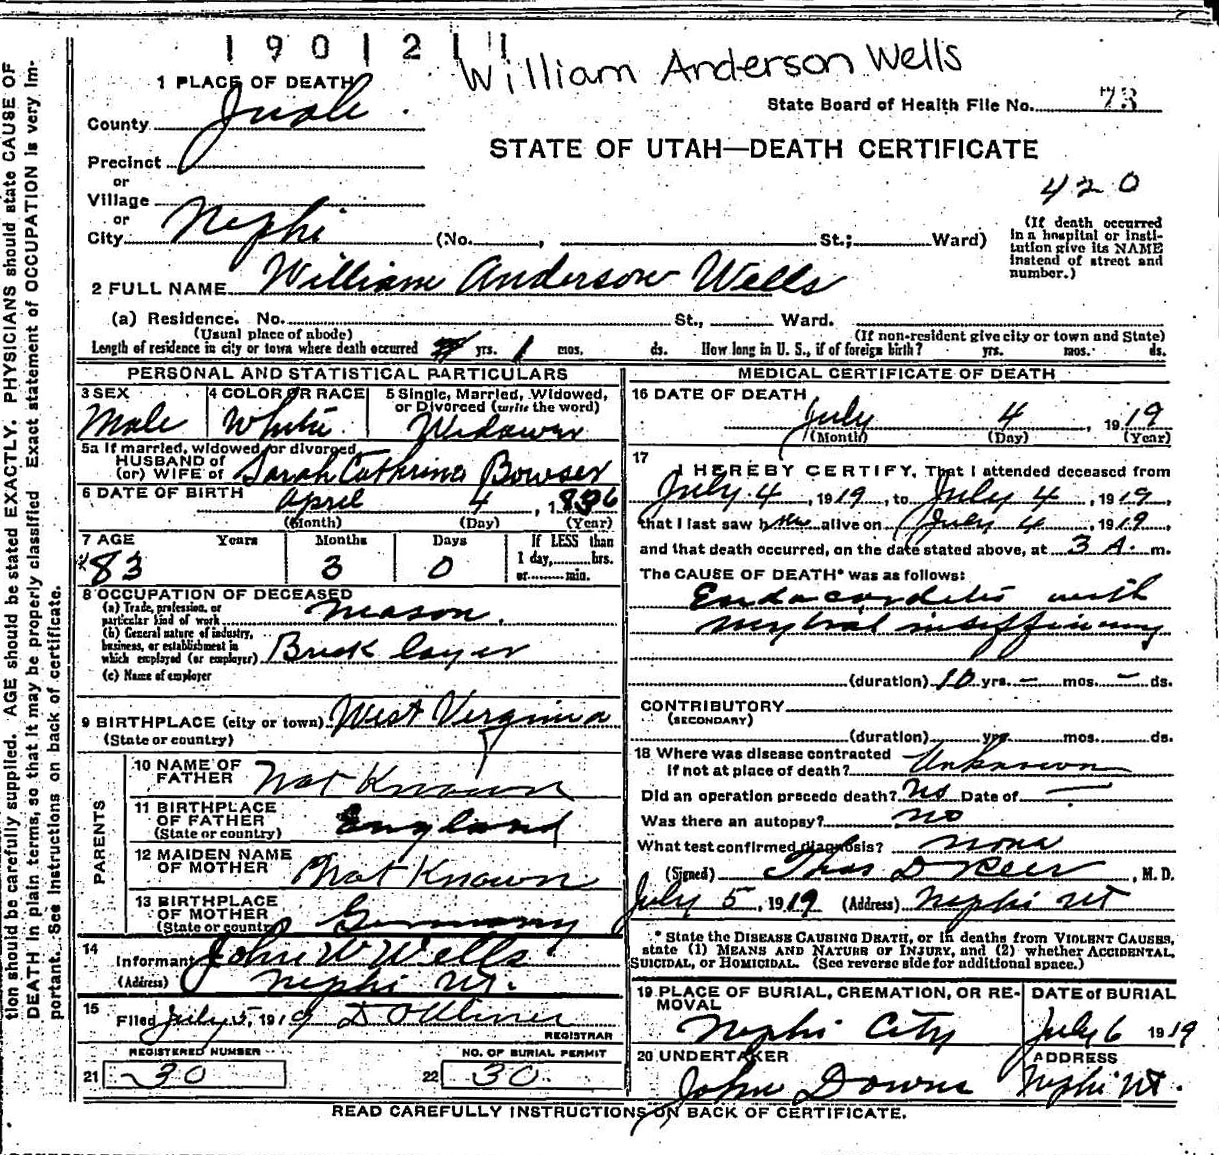 1901211
William Anderson Wells
1 PLACE OF DEATH
State Board of Health File No. 73
County Juab
STATE OF UTAH—DEATH CERTIFICATE
Precinct
or
420
Village
or
City Nephi (No. , St.; Ward)
(If death occurred in a hospital or institution give its NAME instead of street and number.)
2 FULL NAME William Anderson Wells
(a) Residence. No. St., Ward.
(Usual place of abode) (If non-resident give city or town and State)
Length of residence in city or town where death occurred yrs. 1 mos. ds. How long in U. S., if of foreign birth? yrs. mos. ds.
PERSONAL AND STATISTICAL PARTICULARS
3 SEX 4 COLOR OR RACE 5 Single, Married, Widowed, or Divorced (write the word)
Male White Widower
5a If married, widowed or divorced
HUSBAND of
(or) WIFE of Sarah Cathrina Bowser
6 DATE OF BIRTH April 4, 1836
(Month) (Day) (Year)
7 AGE Years Months Days If LESS than
1 day, hrs.
or min.
83 3 0
8 OCCUPATION OF DECEASED
(a) Trade, profession, or particular kind of work Meason.
(b) General nature of industry, business, or establishment in which employed (or employer) Brick layer
(c) Name of employer
9 BIRTHPLACE (city or town) West Virginia
(State or country)
PARENTS
10 NAME OF FATHER Not Known
11 BIRTHPLACE OF FATHER England
(State or country)
12 MAIDEN NAME OF MOTHER Not Known
13 BIRTHPLACE OF MOTHER Germany
(State or country)
14
Informant John W Wells
(Address) Nephi Ut.
15
Filed July 5, 1919
REGISTRAR
REGISTERED NUMBER NO. OF BURIAL PERMIT
21 30 22 30
MEDICAL CERTIFICATE OF DEATH
16 DATE OF DEATH
July 4, 1919
(Month) (Day) (Year)
17
I HEREBY CERTIFY, That I attended deceased from
July 4, 1919, to July 4, 1919,
that I last saw him alive on July 4, 1919,
and that death occurred, on the date stated above, at 3 A. m.
The CAUSE OF DEATH* was as follows:
Endocordetis with
Mytral insifficiency
(duration) 10 yrs. - mos. - ds.
CONTRIBUTORY
(SECONDARY)
(duration) yrs. mos. ds.
18 Where was disease contracted
if not at place of death? Unknown
Did an operation precede death? No Date of —
Was there an autopsy? no
What test confirmed diagnosis? none
(Signed) Thos D Reer, M. D.
July 5, 1919 (Address) Nephi Ut
* State the DISEASE CAUSING DEATH, or in deaths from VIOLENT CAUSES,
state (1) MEANS AND NATURE OF INJURY, and (2) whether ACCIDENTAL,
SUICIDAL, or HOMICIDAL. (See reverse side for additional space.)
19 PLACE OF BURIAL, CREMATION, OR REMOVAL DATE of BURIAL
Nephi City July 6 1919
20 UNDERTAKER ADDRESS
John Downs Nephi Ut.
READ CAREFULLY INSTRUCTIONS ON BACK OF CERTIFICATE.
tion should be carefully supplied. AGE should be stated EXACTLY. PHYSICIANS should state CAUSE OF
DEATH in plain terms, so that it may be properly classified. Exact statement of OCCUPATION is very im-
portant. See instructions on back of certificate.